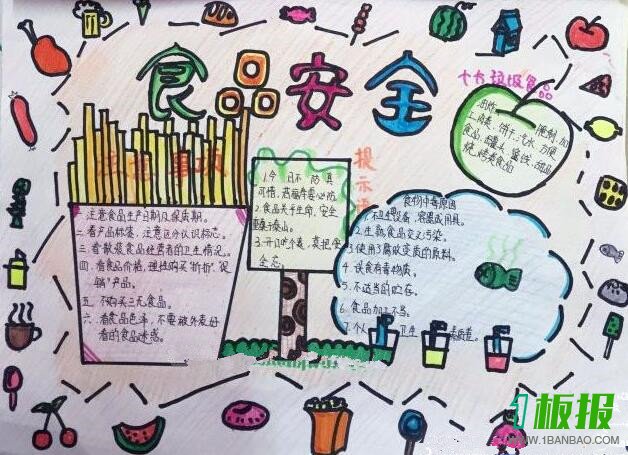 食品安全
十大垃圾食品
油炸 腌制 加
工肉类 饼干 汽水 方便
食品 罐头 蜜饯 甜品
烧烤类食品
注意事项
一 注意食品生产日期及保质期。
二 看产品标签，注意区分认识标志。
三 看散装食品经营者的卫生情况。
四 看食品价格，理性购买"打折"、"促
销"产品。
五 不购买三无食品。
六 看食品色泽，不要被外表好
看的食品迷惑。
提示语
1.今日不防具
2.食品关乎生命，安全
重于泰山。
食物中毒原因
1.不卫生设备、容器或用具。
2.生熟食品交叉污染。
3.使用了腐败变质的原料。
4.误食有毒物质。
5.不适当的贮存。
6.食品加工不当。
7.个人卫生
1板报
WWW.1BANBAO.COM